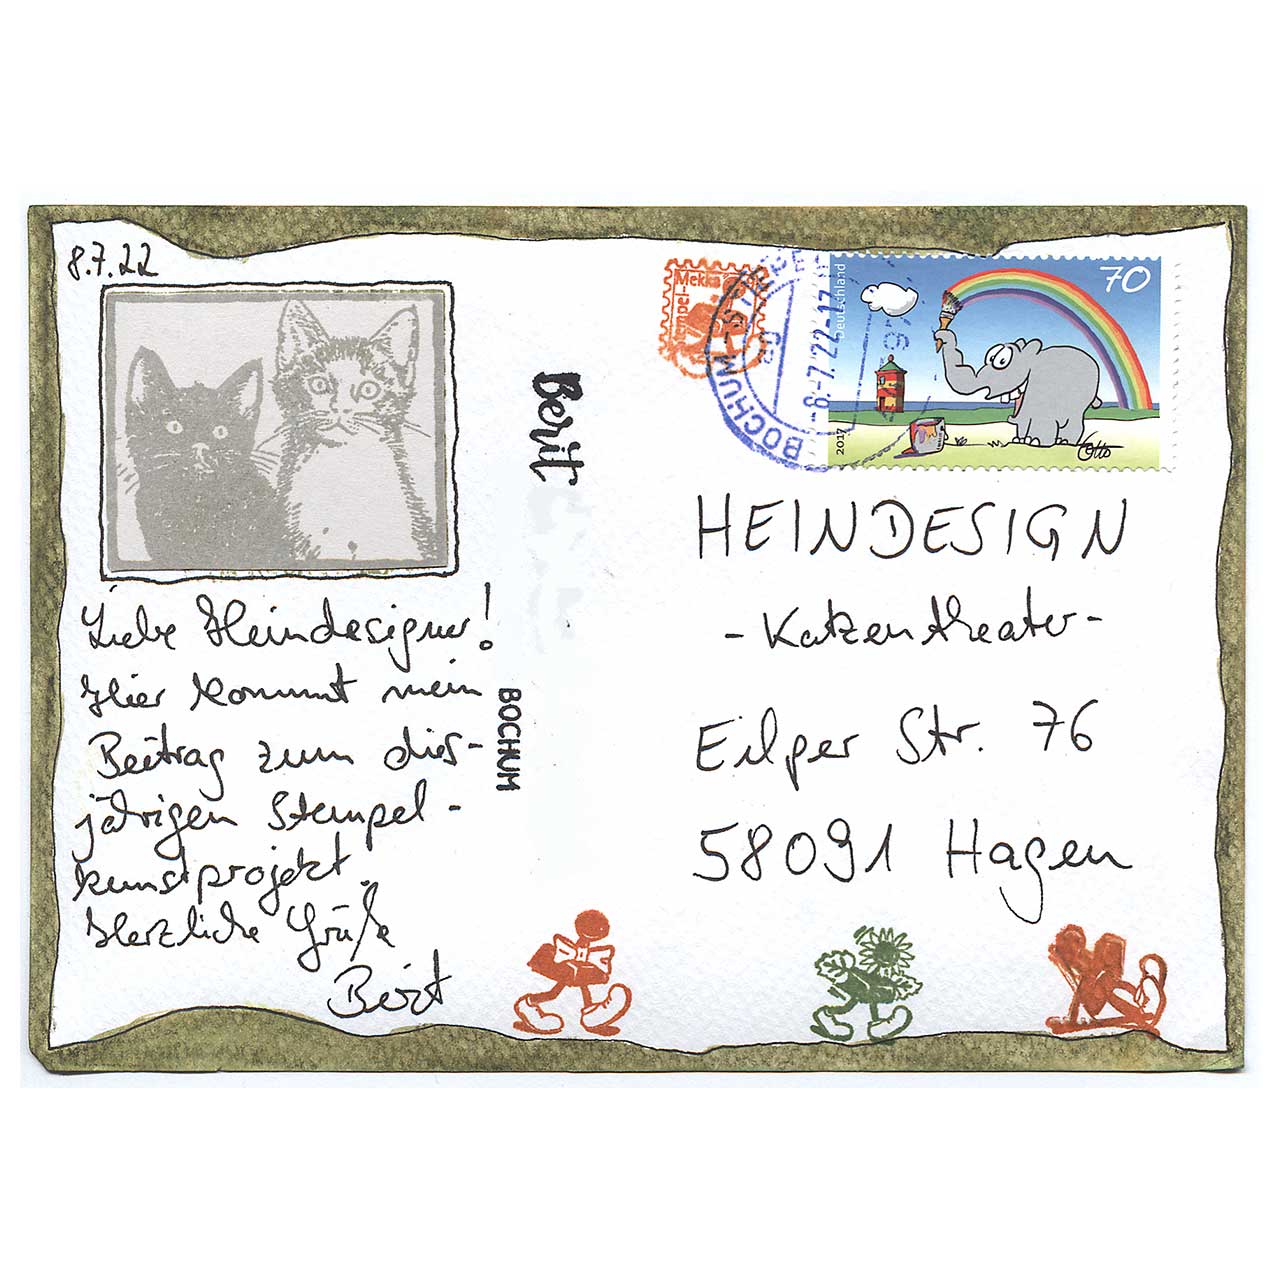 8.7.22
Liebe Heindesigner!
Hier kommt mein
Beitrag zum dies-
jährigen Stempel-
kunstprojekt.
Herzliche Grüße
Berit
Berit
BOCHUM
Mekka
Stempel-
BOCHUM
-8.-7.22-17
Deutschland
70
2017
Otto
HEINDESIGN
-Katzentheater-
Eilper Str. 76
58091 Hagen